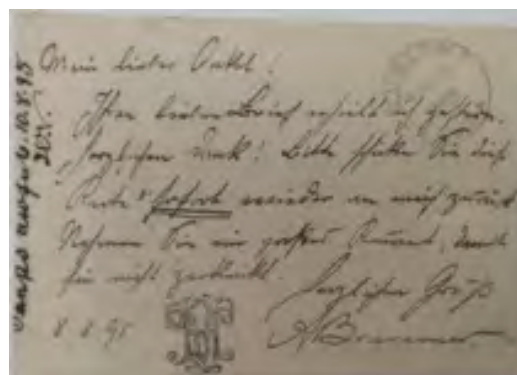 Mein lieber Onkel!
Ihren lieben Brief erhielt ich gestern,
herzlichen Dank! Bitte schicken Sie diese
Karte sofort wieder an mich zurück
Nehmen Sie ein großes Kuvert, damit
sie nicht zerknickt.
Herzlichen Gruß
8.8.95